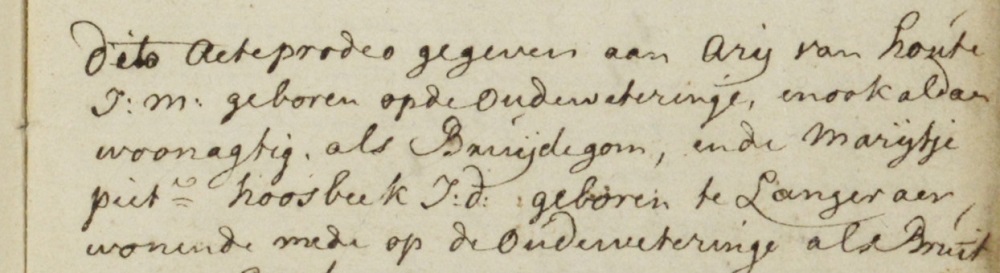 Dito Acte prodeo gegeven aan Arij van houte
J: m: geboren op de Oudeweteringe, en ook aldaer
woonagtig. als Bruijdegom, ende Marijtje
piet.ᵉ hoosbeek J: d: geboren te Langeraer,
wonende mede op de Oudeweteringe als Bruijt